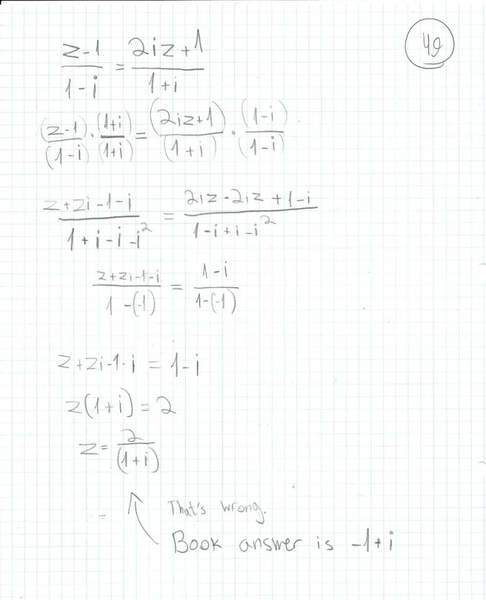 49
z-1/1-i = 2iz+1/1+i
(z-1)/(1-i) · (1+i)/(1+i) = (2iz+1)/(1+i) · (1-i)/(1-i)
z+zi-1-i/1+i-i-i² = 2iz-2iz+1-i/1-i+i-i²
z+zi-1-i/1-(-1) = 1-i/1-(-1)
z+zi-1-i = 1-i
z(1+i) = 2
z = 2/(1+i)
=
That's wrong.
Book answer is -1+i